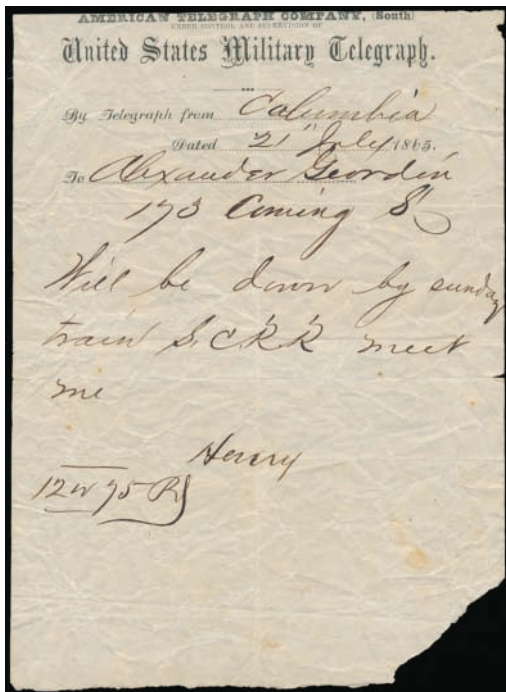 AMERICAN TELEGRAPH COMPANY, (South)
UNDER CONTROL AND SUPERVISION OF
United States Military Telegraph.
By Telegraph from Columbia
Dated 21" July 1865.
To Alexander Geordin
173 Coming S
Will be down by sunday
train S. C. R. R meet
me
Henry
12 W 75